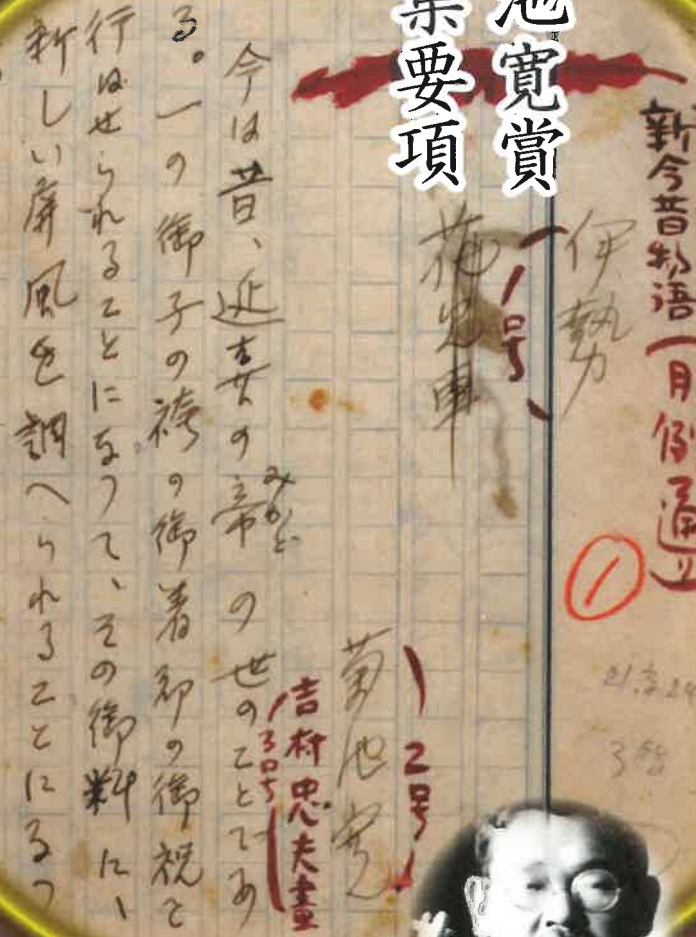 池寛賞
集要項
新今昔物语
伊勢
①
1号
菊池寛
2号
吉村忠夫畫
今は昔、延喜の帝の世のことであ
みかど
る。一の御子の袴の御着初の御祝と
行はせられることになつて、その御料に、
新しい屏風を調へられることになつ